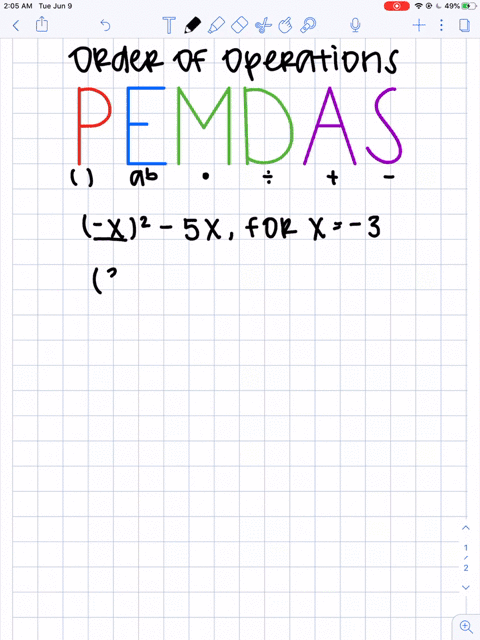 2:05 AM Tue Jun 9 49%
Order of Operations
PEMDAS
( ) ab • ÷ + −
(-x)² - 5x, for x = -3
(
1
2